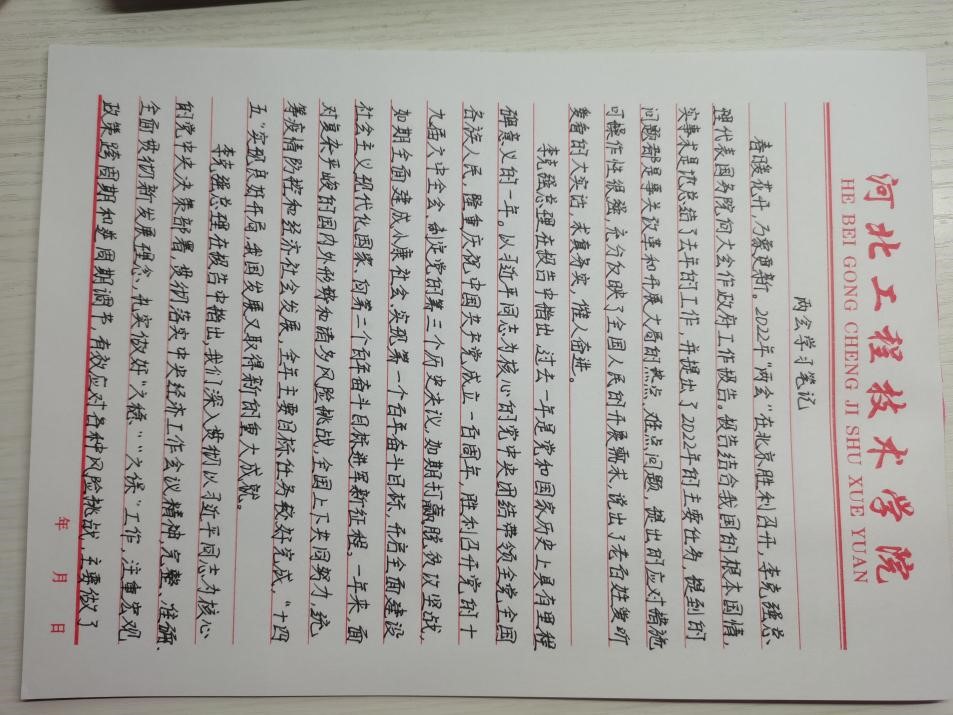 河北工程技术学院
HE BEI GONG CHENG JI SHU XUE YUAN
两会学习笔记
春暖花开，万象更新。2022年“两会”在北京胜利召开，李克强总
理代表国务院向大会作政府工作报告。报告结合我国的根本国情，
实事求是地总结了去年的工作，并提出了2022年的主要任务，提到的
问题都是事关改革和开展大局的热点、难点问题，提出的应对措施
可操作性很强，充分反映了全国人民的开展需求，说出了老百姓爱听
爱看的大实话，求真务实，催人奋进。
李克强总理在报告中指出，过去一年是党和国家历史上具有里程
碑意义的一年。以习近平同志为核心的党中央团结带领全党全国
各族人民，隆重庆祝中国共产党成立一百周年，胜利召开党的十
九届六中全会、制定党的第三个历史决议，如期打赢脱贫攻坚战，
如期全面建成小康社会、实现第一个百年奋斗目标，开启全面建设
社会主义现代化国家、向第二个百年奋斗目标进军新征程。一年来，面
对复杂严峻的国内外形势和诸多风险挑战，全国上下共同努力，统
筹疫情防控和经济社会发展，全年主要目标任务较好完成，“十四
五”实现良好开局，我国发展又取得新的重大成就。
李克强总理在报告中指出，我们深入贯彻以习近平同志为核心
的党中央决策部署，贯彻落实中央经济工作会议精神，完整、准确、
全面贯彻新发展理念，扎实做好“六稳”“六保”工作，注重宏观
政策跨周期和逆周期调节，有效应对各种风险挑战，主要做了
年 月 日